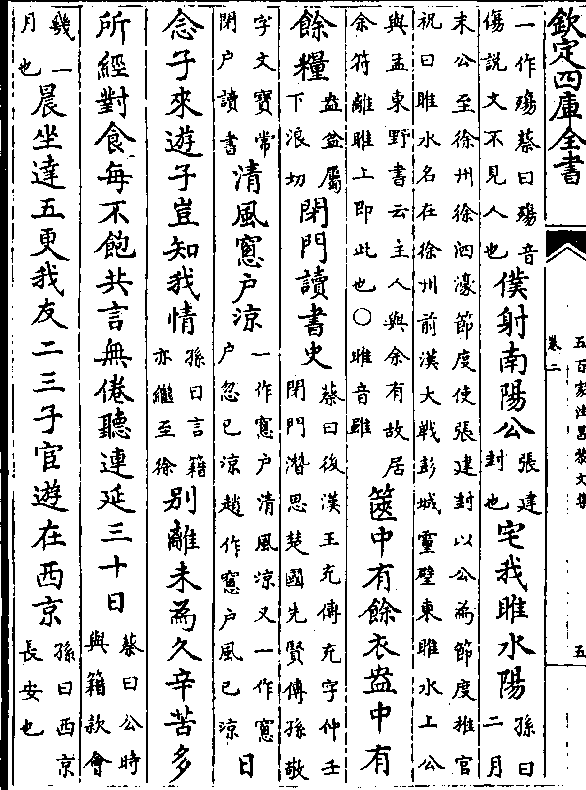 欽定四庫全書
五百家注昌黎文集
卷二
五
一作殤蔡曰殤音
傷説文不見人也
僕射南陽公
張建
封也
宅我睢水陽
孫曰
二月
末公至徐州徐泗濠節度使張建封以公為節度推官
祝曰睢水名在徐州前漢大戰彭城靈壁東睢水上公
與孟東野書云主人與余有故居
余符離睢上即此也○睢音雖
篋中有餘衣盎中有
餘糧
盎盆屬
下浪切
閉門讀書史
蔡曰後漢王充傳充字仲壬
閉門潛思楚國先賢傳孫敬
字文寶常
閉户讀書
清風窓户涼
一作窓户清風涼又一作窓
户忽已涼趙作窓户風已涼
日
念子來遊子豈知我情
孫曰言籍
亦繼至徐
別離未為久辛苦多
所經對食每不飽共言無倦聽連延三十日
蔡曰公時
與籍款會
幾一
月也
晨坐達五更我友二三子官遊在西京
孫曰西京
長安也